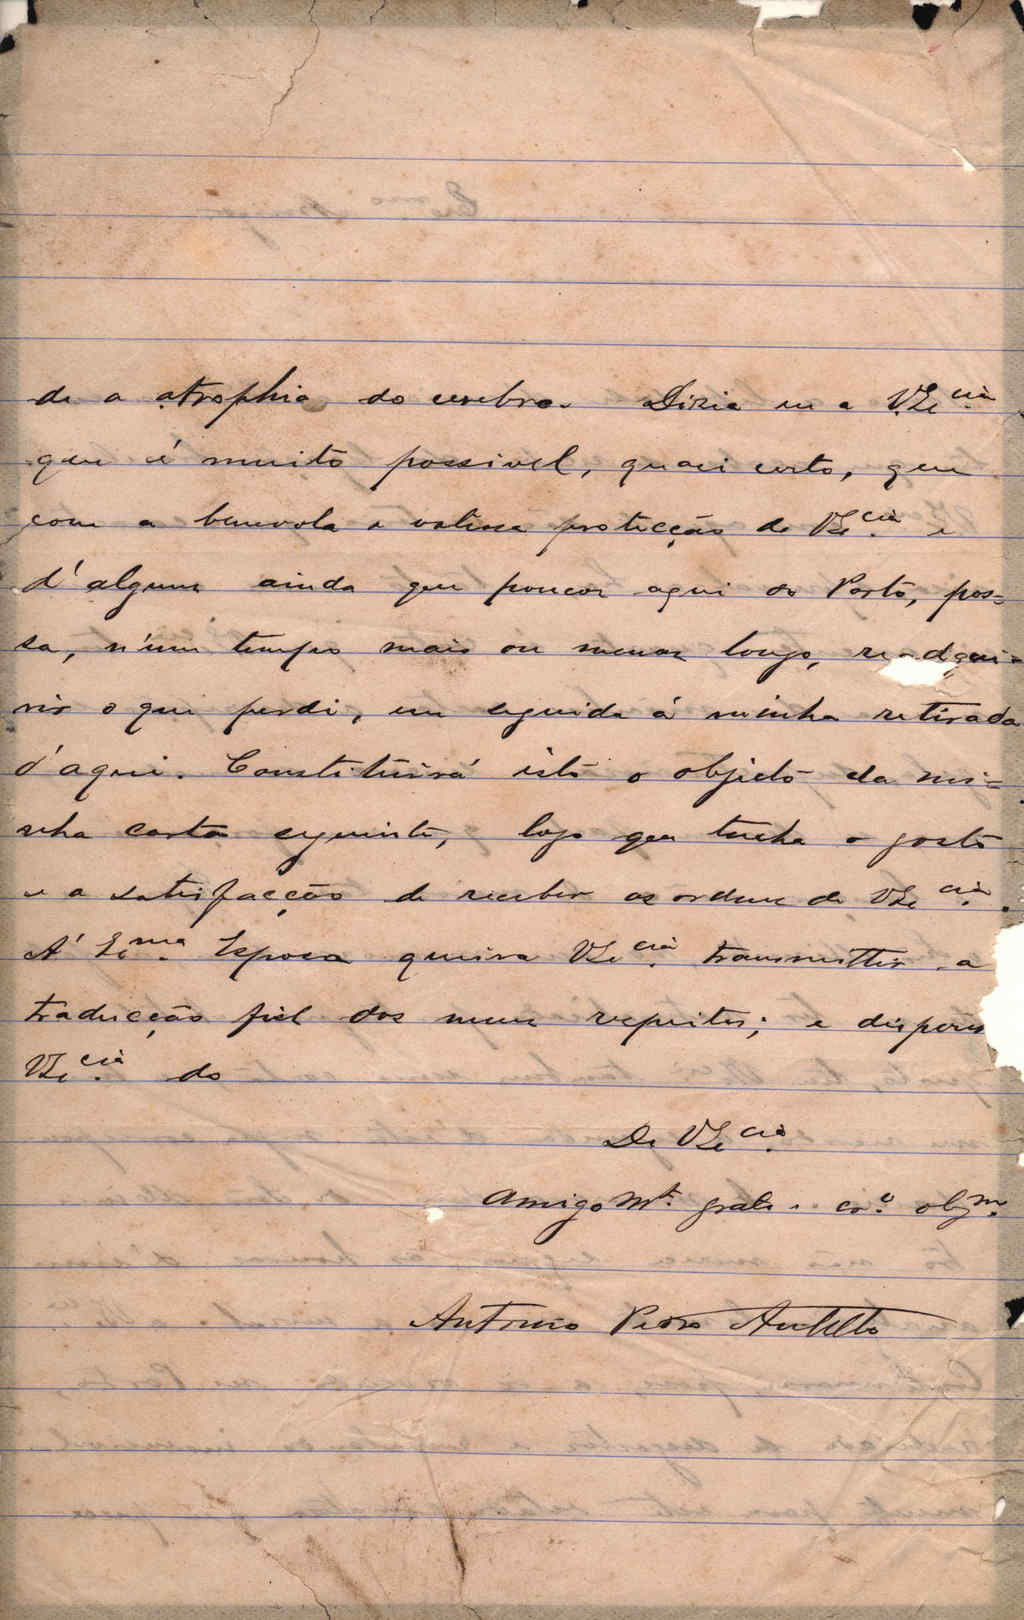 de a atrophia do cerebro. Diria eu a V.Ex.cia
que é muito possivel, quasi certo, que
com a benevola e valiosa protecção de V.Ex.cia e
d'alguns ainda que poucos aqui do Porto, pos-
sa, n'um tempo mais ou menos longo, readqui-
rir o que perdi, em seguida á minha retirada
d'aqui. Constituirá isto o objecto da mi-
nha carta seguinte, logo que tenha o gosto
e a satisfacção de receber as ordens de V.Ex.cia.
Á Ex.ma Esposa queira V.Ex.cia transmittir a
traducção fiel dos meus respeitos; e dispor
V.Ex.cia do
De V.Ex.cia
Amigo M.to grato e cr.o obg.mo
Antonio Pedro